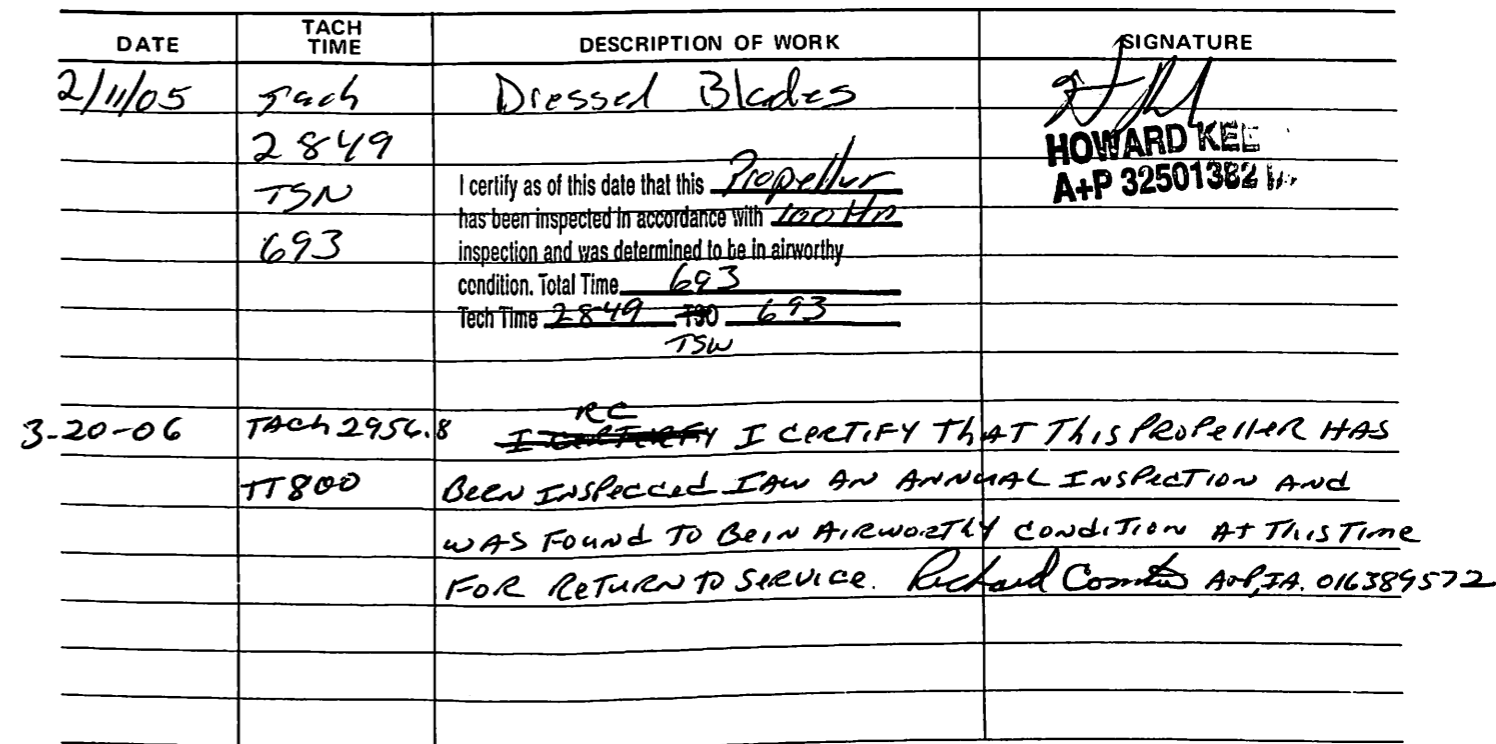 DATE TACH TIME DESCRIPTION OF WORK SIGNATURE
2/11/05 Tach Dressed Blades
2849
HOWARD KEE
TSN I certify as of this date that this Propeller A+P 32501382
has been inspected in accordance with 100 Hr
693 inspection and was determined to be in airworthy
condition. Total Time 693
Tech Time 2849 TSO 693
TSN
RC
3-20-06 TACH 2956.8 I CERTIFY I CERTIFY THAT THIS PROPELLER HAS
TT 800 BEEN INSPECCED IAW AN ANNUAL INSPECTION AND
WAS FOUND TO BE IN AIRWORTHY CONDITION AT THIS TIME
FOR RETURN TO SERVICE. Richard A+P, IA. 016389572